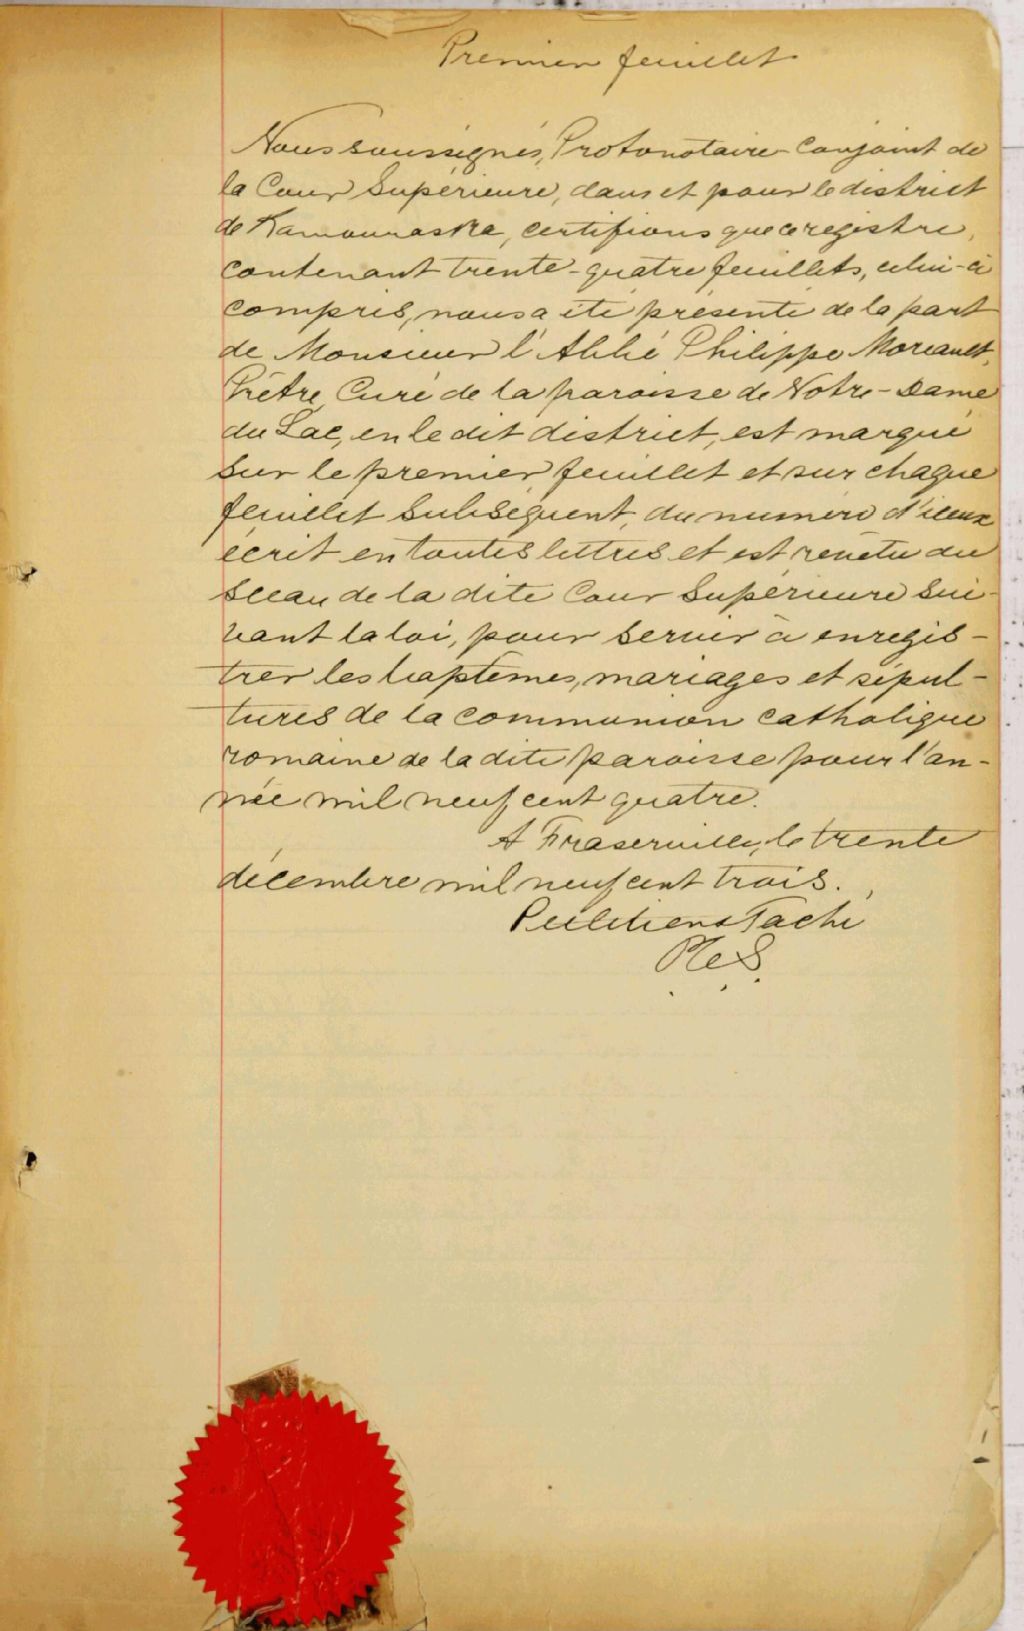 Premier feuillet
Nous soussignés, Protonotaire-Conjoint de
la Cour Supérieure, dans et pour le district
de Kamouraska, certifions que ce registre,
contenant trente-quatre feuillets, celui-ci
compris, nous a été présenté de la part
de Monsieur l'Abbé Philippe Moreault,
Prêtre Curé de la paroisse de Notre-Dame
du Lac, en le dit district, est marqué
sur le premier feuillet et sur chaque
feuillet subséquent, du numéro d'iceux
écrit en toutes lettres et est revêtu du
sceau de la dite Cour Supérieure sui-
vant la loi, pour servir à enregis-
trer les baptêmes, mariages et sépul-
tures de la communion catholique
romaine de la dite paroisse pour l'an-
née mil neuf cent quatre.
A Fraserville, le trente
décembre mil neuf cent trois.
Taché
P.C.S.